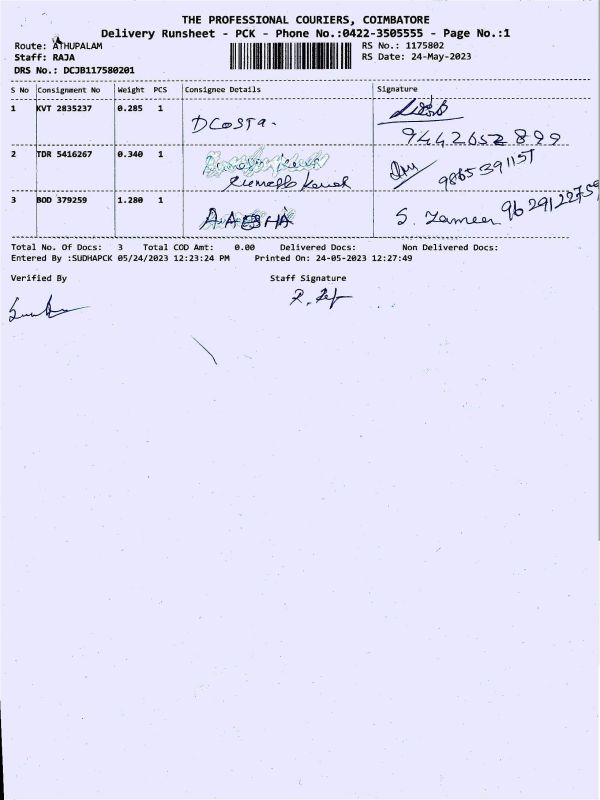 THE PROFESSIONAL COURIERS, COIMBATORE
Delivery Runsheet - PCK - Phone No.:0422-3505555 - Page No.:1
Route: ATHUPALAM
RS No.: 1175802
Staff: RAJA
RS Date: 24-May-2023
DRS No.: DCJB117580201
S No Consignment No Weight PCS Consignee Details Signature
1 KVT 2835237 0.285 1 DCosta.
9442652899
2 TDR 5416267 0.340 1
9865391157
3 BOD 379259 1.280 1 S. Zameer
Total No. Of Docs: 3 Total COD Amt: 0.00 Delivered Docs: Non Delivered Docs:
Entered By :SUDHAPCK 05/24/2023 12:23:24 PM Printed On: 24-05-2023 12:27:49
Verified By Staff Signature